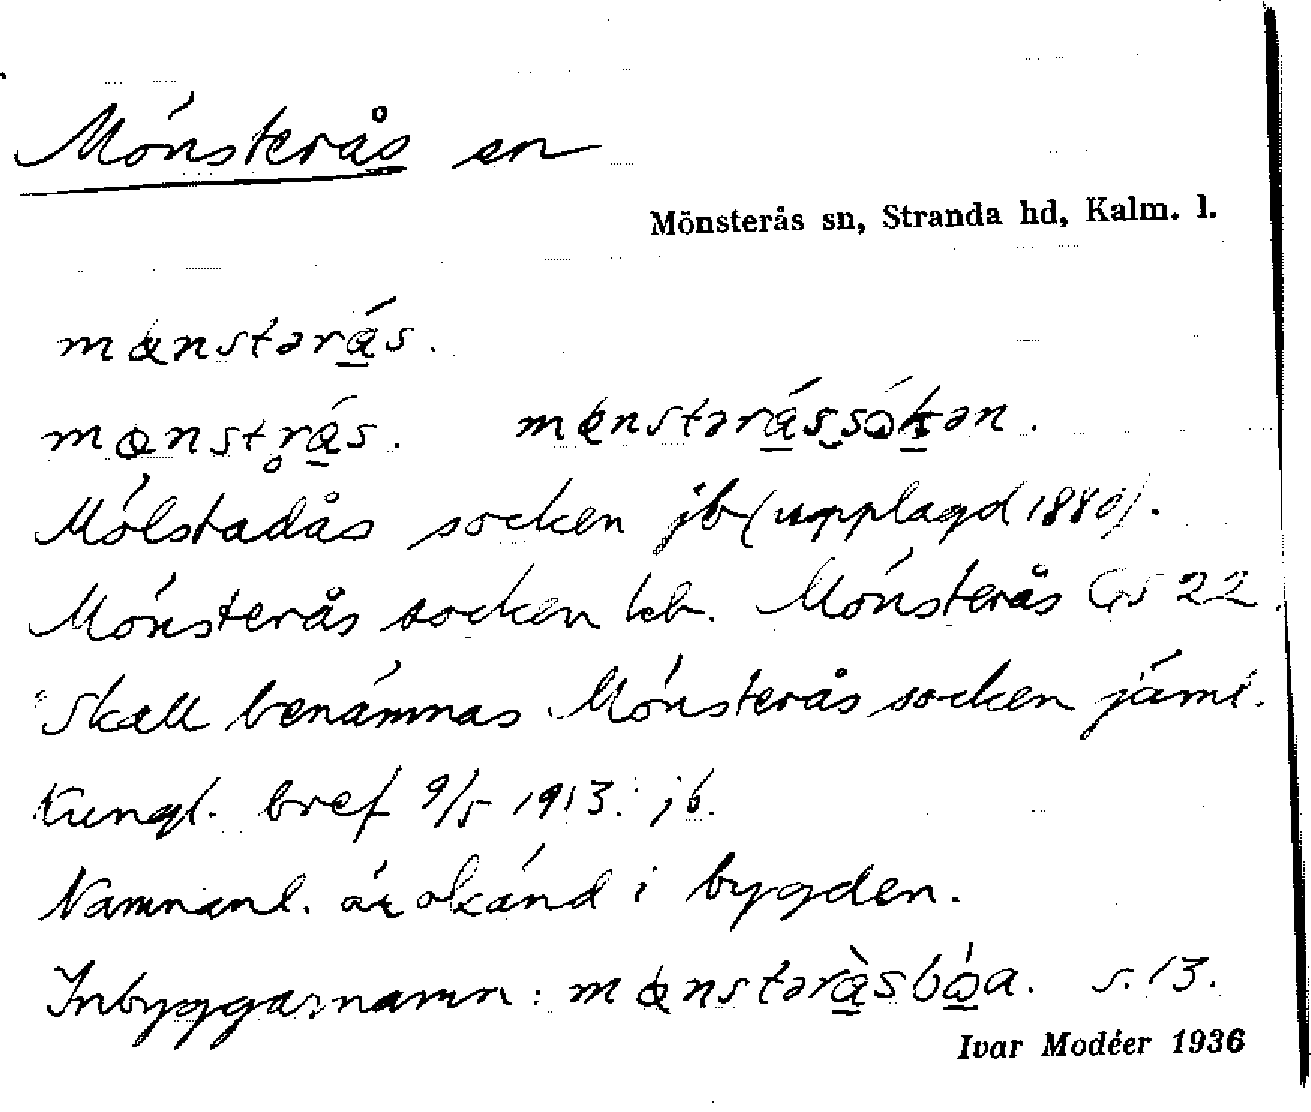 Mönsterås sn
Mönsterås sn, Stranda hd, Kalm. l.
mønstərás.
mønstr̥ás. mønstərás̬sókən.
Mölstadås socken jb (upplagd 1880).
Mönsterås socken kb. Mönsterås GS 22.
"Skall benämnas Mönsterås socken jäml.
Kungl. bref 9/5 1913." jb.
Namnanl. är okänd i bygden.
Inbyggarnamn: mønstəràsbóa. s. 13.
Ivar Modéer 1936